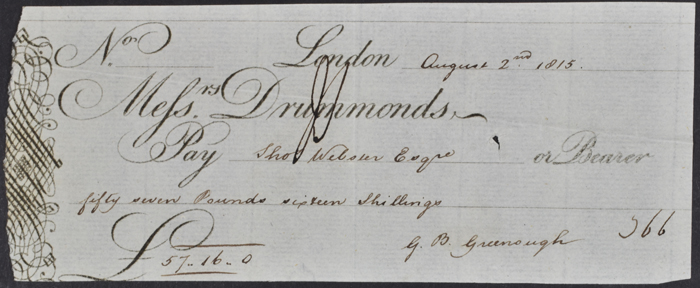 No. London August 2nd 1815.
Messrs. Drummonds,
Pay Thos Webster Esqre or Bearer
fifty seven Pounds sixteen Shillings
G. B. Greenough 366
£ 57-16-0